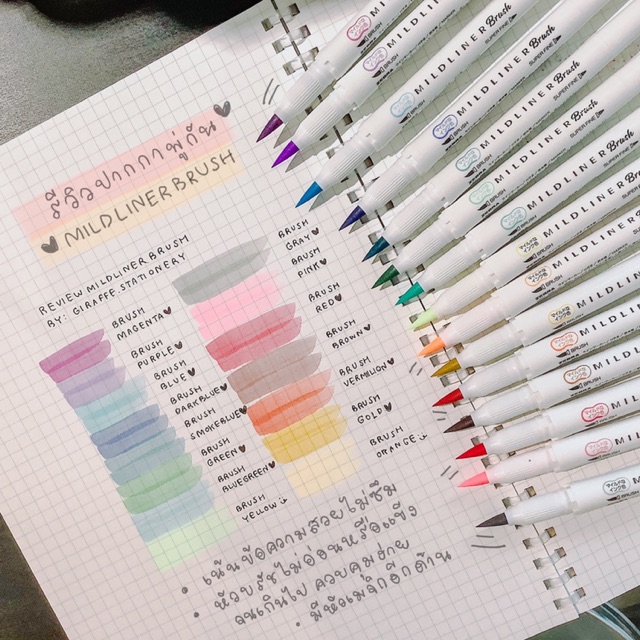 รีวิวปากกาพู่กัน
MILDLINER BRUSH
REVIEW MILDLINER BRUSH
BY: GIRAFFE.STATIONERY
BRUSH
MAGENTA
BRUSH
PURPLE
BRUSH
BLUE
BRUSH
DARKBLUE
BRUSH
SMOKEBLUE
BRUSH
GREEN
BRUSH
BLUEGREEN
BRUSH
YELLOW
BRUSH
GRAY
BRUSH
PINK
BRUSH
RED
BRUSH
BROWN
BRUSH
VERMILION
BRUSH
GOLD
BRUSH
ORANGE
• เน้นข้อความสวยไม่ซึม
• หัวบรัชไม่อ่อนหรือแข็ง
จนเกินไป ควบคุมง่าย
• มีหัวเมจิกอีกด้าน
MILDLINER Brush
SUPER FINE
MILDLINER Brush
SUPER FINE
MILDLINER Brush
SUPER FINE
MILDLINER Brush
SUPER FINE
MILDLINER Brush
MILDLINER
MILDLINER
MILDLINER